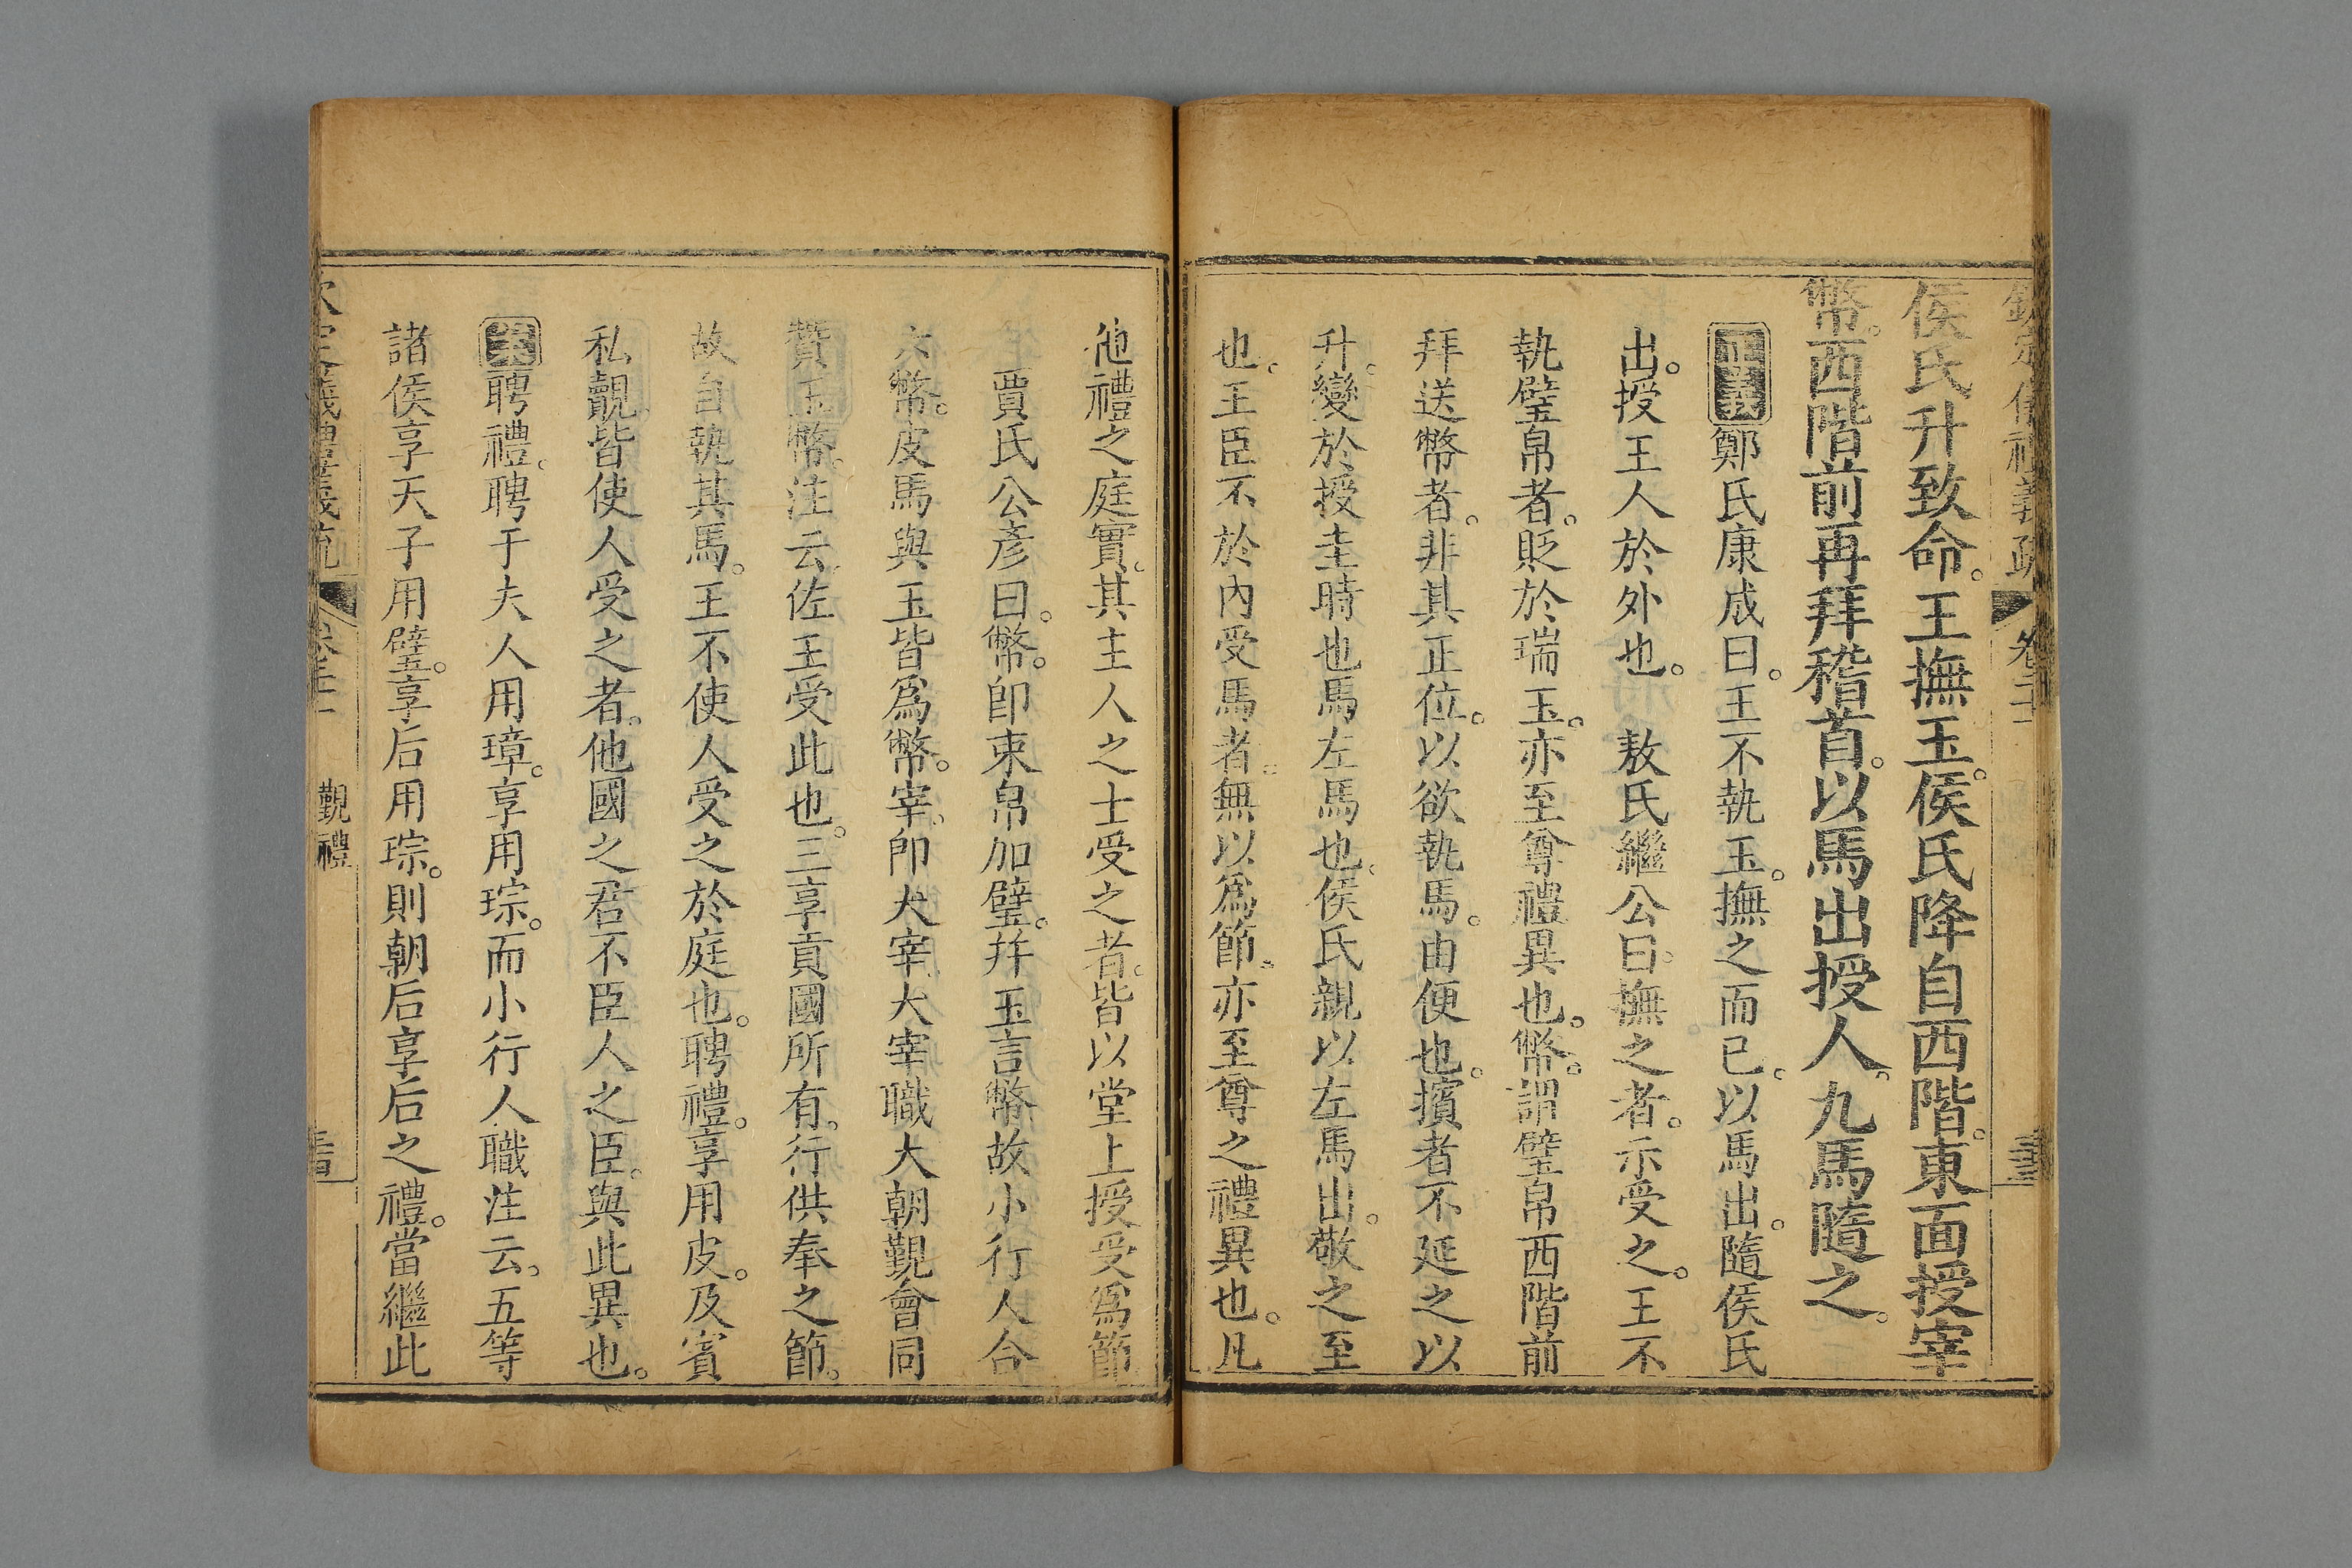 侯氏升致命。王撫玉。侯氏降自西階。東面授宰
幣。西階前再拜稽首。以馬出授人。九馬隨之。
正義鄭氏康成曰。王不執玉。撫之而已。以馬出。隨侯氏
出。授王人於外也。 敖氏繼公曰。撫之者。示受之。王不
執璧帛者。貶於瑞玉。亦至尊禮異也。幣。謂璧帛西階前
拜送幣者。非其正位。以欲執馬。由便也。擯者不延之以
升。變於授圭時也馬左馬也。侯氏親以左馬出。敬之至
也。王臣不於內受馬者。無以爲節。亦至尊之禮異也。凡
他禮之庭實。其主人之士受之者。皆以堂上授受爲節
賈氏公彥曰。幣。卽束帛加璧。幷玉言幣故小行人合
六幣。皮馬與玉皆爲幣。宰。卽大宰。大宰職大朝覲會同
贊玉幣。注云。佐王受此也。三享貢國所有。行供奉之節。
故自執其馬。王不使人受之於庭也。聘禮。享用皮。及賓
私覿。皆使人受之者。他國之君不臣人之臣。與此異也。
案聘禮。聘于夫人用璋。享用琮。而小行人職注云。五等
諸侯享天子用璧。享后用琮。則朝后享后之禮。當繼此
卷二十一
覲禮